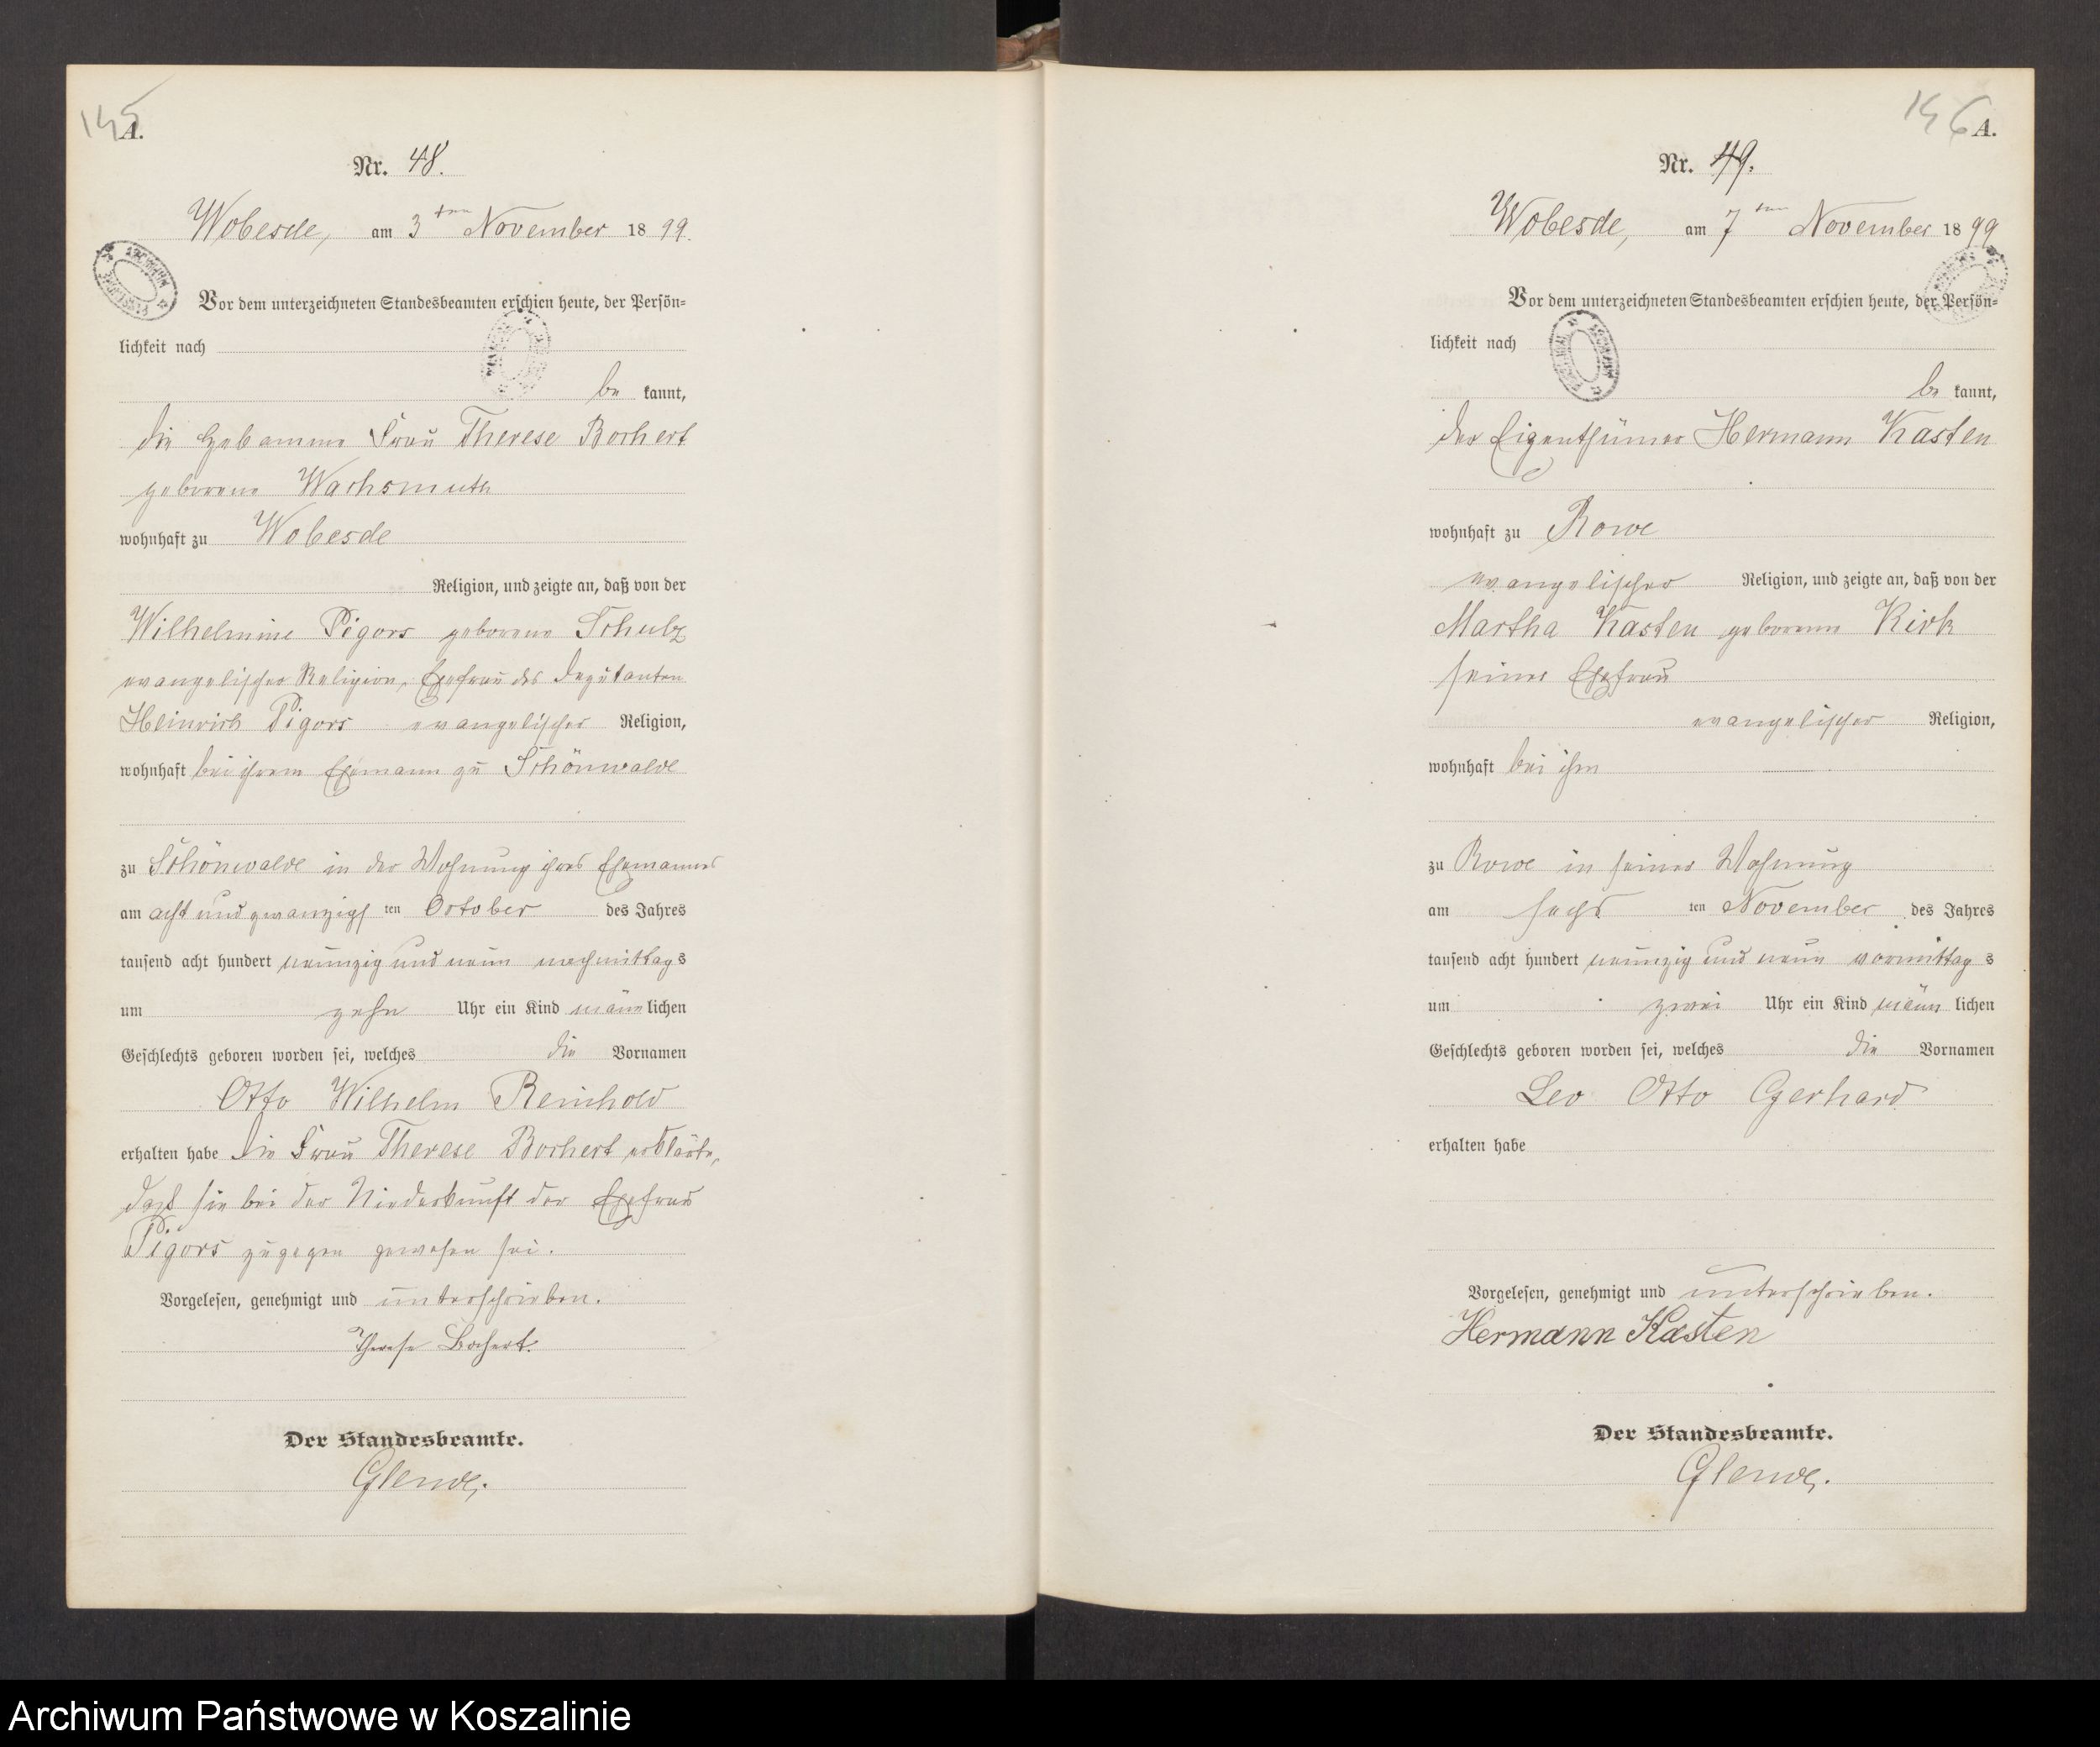 145
A.
Nr. 48.
Wobesde, am 3ten November 1899.
Vor dem unterzeichneten Standesbeamten erschien heute, der Persön-
lichkeit nach
be kannt,
die Hebamme Frau Therese Bochert
geborene Wachsmuth
wohnhaft zu Wobesde
Religion, und zeigte an, daß von der
Wilhelmine Pigors geborene Schulz
evangelischer Religion, Ehefrau des Deputanten
Heinrich Pigors evangelischer Religion,
wohnhaft bei ihrem Ehemann zu Schönwalde
zu Schönwalde in der Wohnung ihres Ehemannes
am acht und zwanzigsten October des Jahres
tausend acht hundert neunzig und neun nachmittags
um zehn Uhr ein Kind männlichen
Geschlechts geboren worden sei, welches die Vornamen
Otto Wilhelm Reinhold
erhalten habe Die Frau Therese Bochert erklärte,
daß sie bei der Niederkunft der Ehefrau
Pigors zugegen gewesen sei.
Vorgelesen, genehmigt und unterschrieben.
Therese Bochert.
Der Standesbeamte.
Glende.
146
A.
Nr. 49.
Wobesde, am 7ten November 1899
Vor dem unterzeichneten Standesbeamten erschien heute, der Persön-
lichkeit nach
be kannt,
der Eigenthümer Hermann Kasten
wohnhaft zu Rowe
evangelischer Religion, und zeigte an, daß von der
Martha Kasten geborenen Kirk
seiner Ehefrau
evangelischer Religion,
wohnhaft bei ihm
zu Rowe in seiner Wohnung
am sechsten November des Jahres
tausend acht hundert neunzig und neun vormittags
um zwei Uhr ein Kind männlichen
Geschlechts geboren worden sei, welches die Vornamen
Leo Otto Gerhard
erhalten habe
Vorgelesen, genehmigt und unterschrieben.
Hermann Kasten
Der Standesbeamte.
Glende.
Archiwum Państwowe w Koszalinie